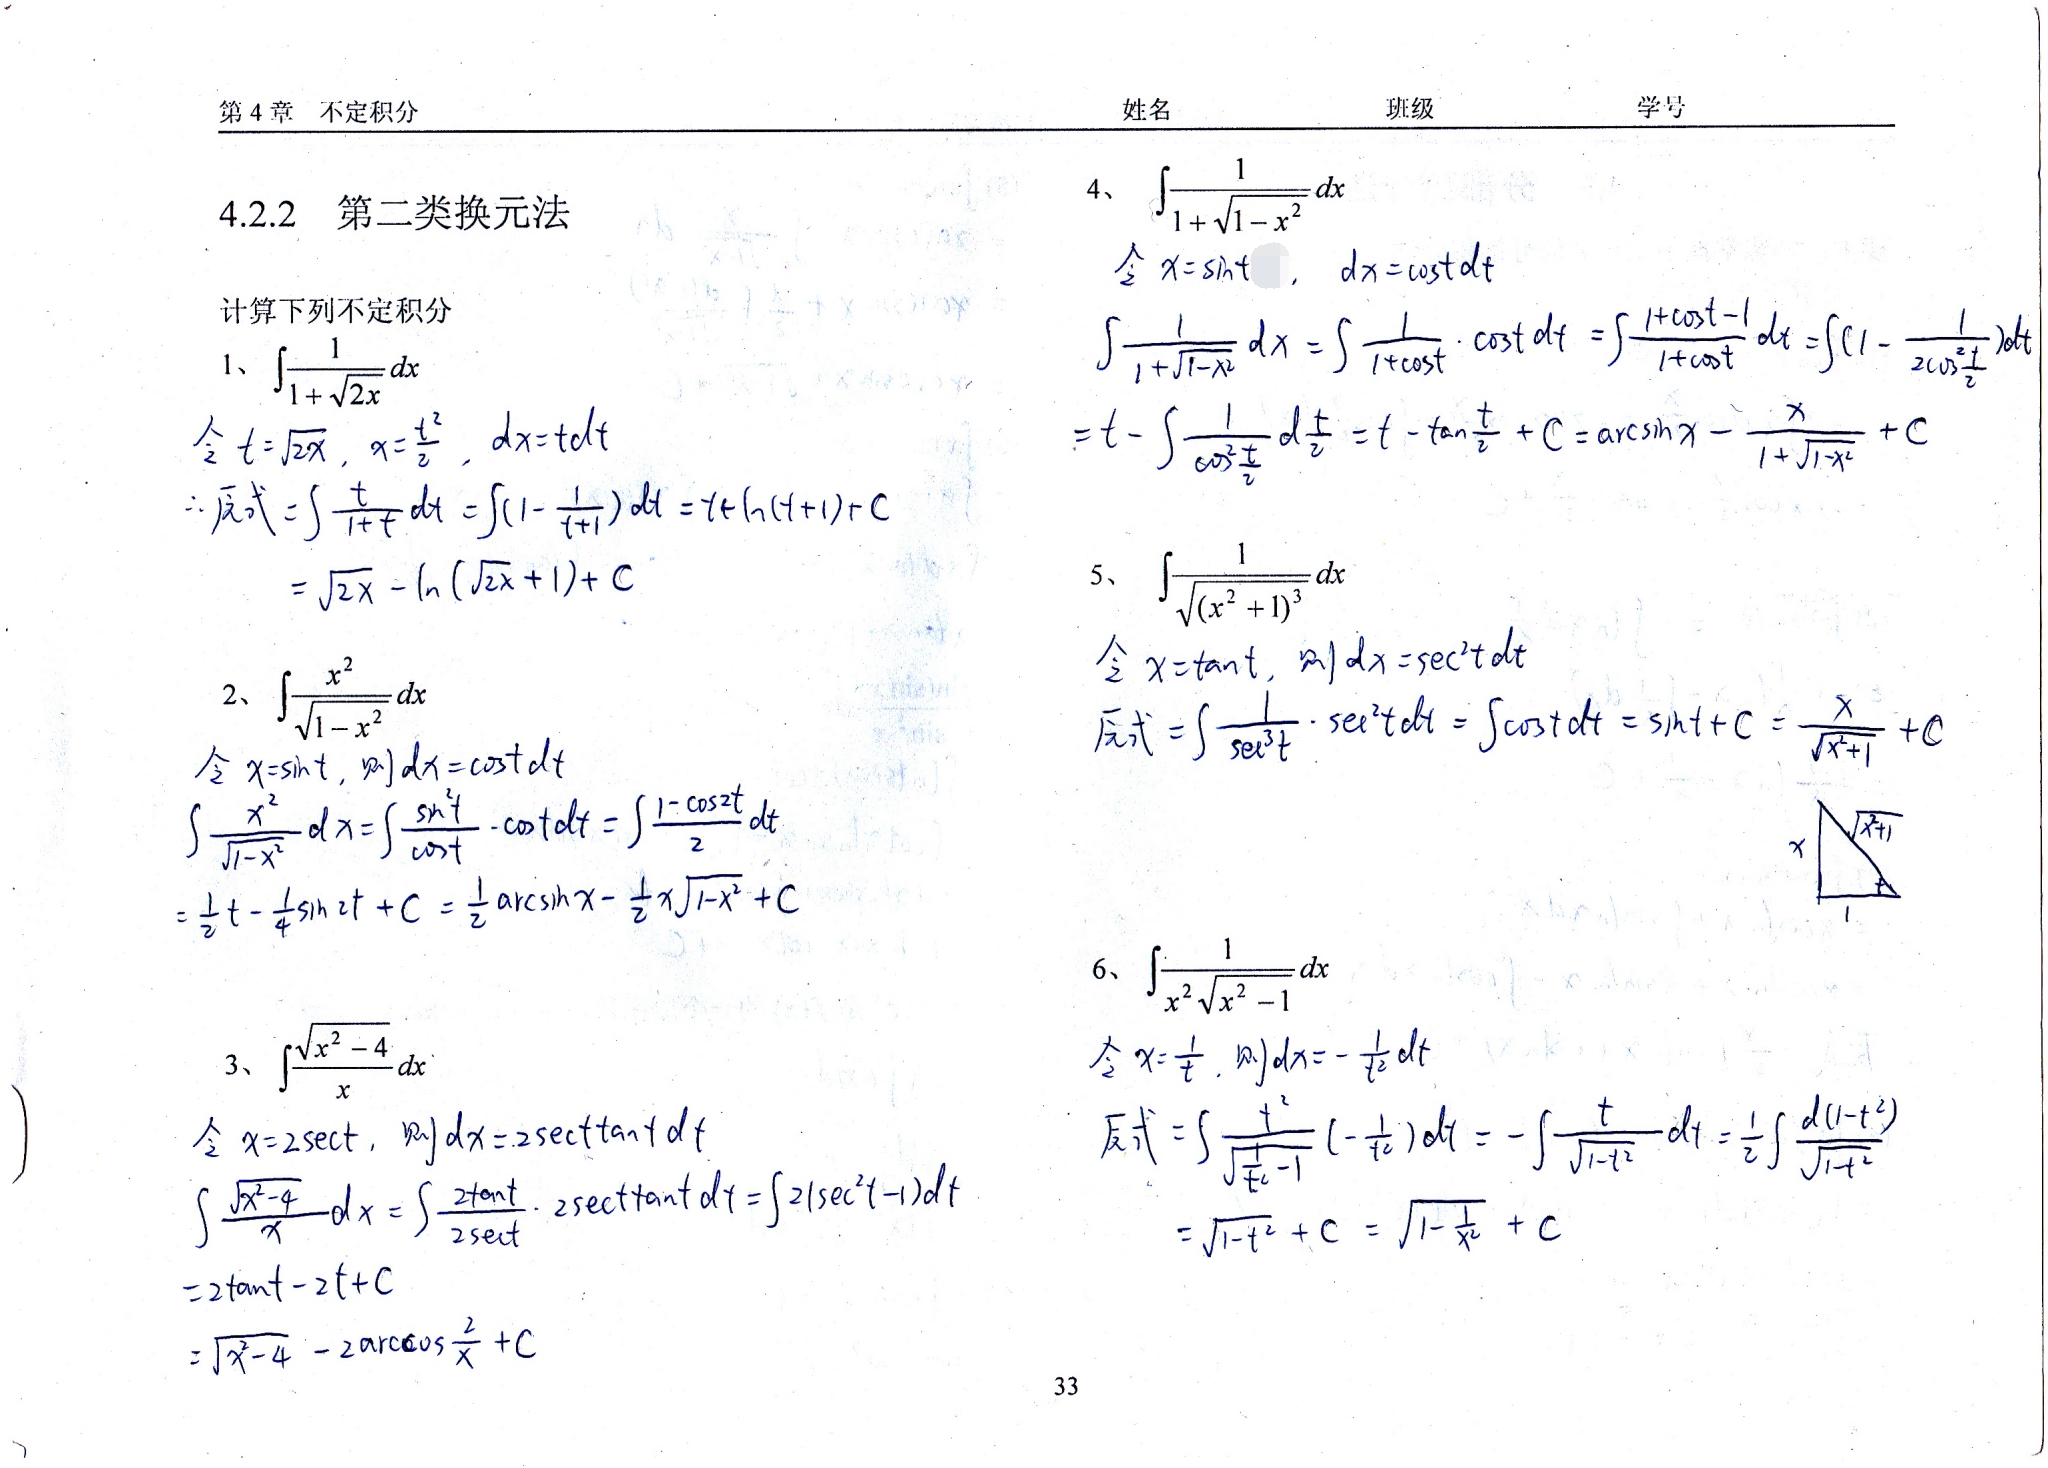 第 4 章 不定积分 姓名 班级 学号
4.2.2 第二类换元法
计算下列不定积分
1、 ∫ 1/(1+√(2x)) dx
令 t=√(2x), x=t²/2, dx=tdt
∴原式=∫ t/(1+t) dt =∫(1- 1/(t+1)) dt = t+ln(t+1)+C
=√(2x) -ln(√(2x)+1)+C
2、 ∫ x²/√(1-x²) dx
令 x=sint, 则dx=costdt
∫ x²/√(1-x²) dx=∫ sin²t/cost ·costdt =∫ (1-cos2t)/2 dt
= 1/2 t - 1/4 sin2t +C = 1/2 arcsinx - 1/2 x√(1-x²) +C
3、 ∫ √(x²-4)/x dx
令 x=2sect, 则dx=2secttantdt
∫ √(x²-4)/x dx =∫ 2tant/2sect · 2secttantdt =∫2(sec²t-1)dt
=2tant-2t+C
=√(x²-4) -2arccos 2/x +C
4、 ∫ 1/(1+√(1-x²)) dx
令 x=sint , dx=costdt
∫ 1/(1+√(1-x²)) dx =∫ 1/(1+cost) · costdt =∫ (1+cost-1)/(1+cost) dt =∫(1- 1/(2cos² t/2))dt
=t-∫ 1/(cos² t/2) d t/2 =t-tan t/2 +C =arcsinx - x/(1+√(1-x²)) +C
5、 ∫ 1/√((x²+1)³) dx
令 x=tant, 则dx=sec²tdt
原式 =∫ 1/sec³t · sec²tdt =∫costdt =sint+C = x/√(x²+1) +C
x √(x²+1) t
1
6、 ∫ 1/(x²√(x²-1)) dx
令 x=1/t, 则dx=- 1/t² dt
原式 =∫ t²/√(1/t²-1) (-1/t²)dt =-∫ t/√(1-t²) dt = 1/2 ∫ d(1-t²)/√(1-t²)
=√(1-t²) +C =√(1-1/x²) +C
33